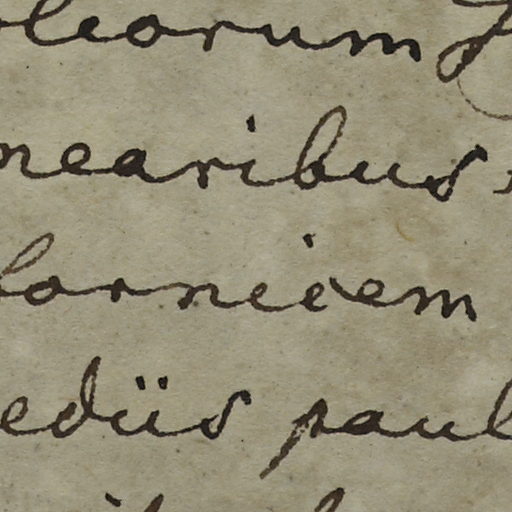 olearum
nearibus,
fornicem
ediis paul